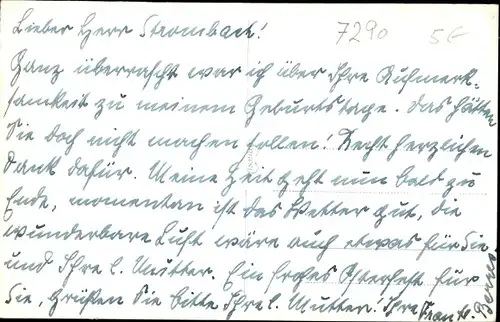 Lieber Herr Strombach!
7290 5€
Ganz überrascht war ich über Ihre Aufmerk-
samkeit zu meinem Geburtstage. Das hätten
Sie doch nicht machen sollen! Recht herzlichen
Dank dafür. Meine Zeit geht nun bald zu
Ende, momentan ist das Wetter gut, die
wunderbare Luft wäre auch etwas für Sie
und Ihre l. Mutter. Ein frohes Osterfest für
Sie, grüßen Sie bitte Ihre l. Mutter! Ihre
Frau H.